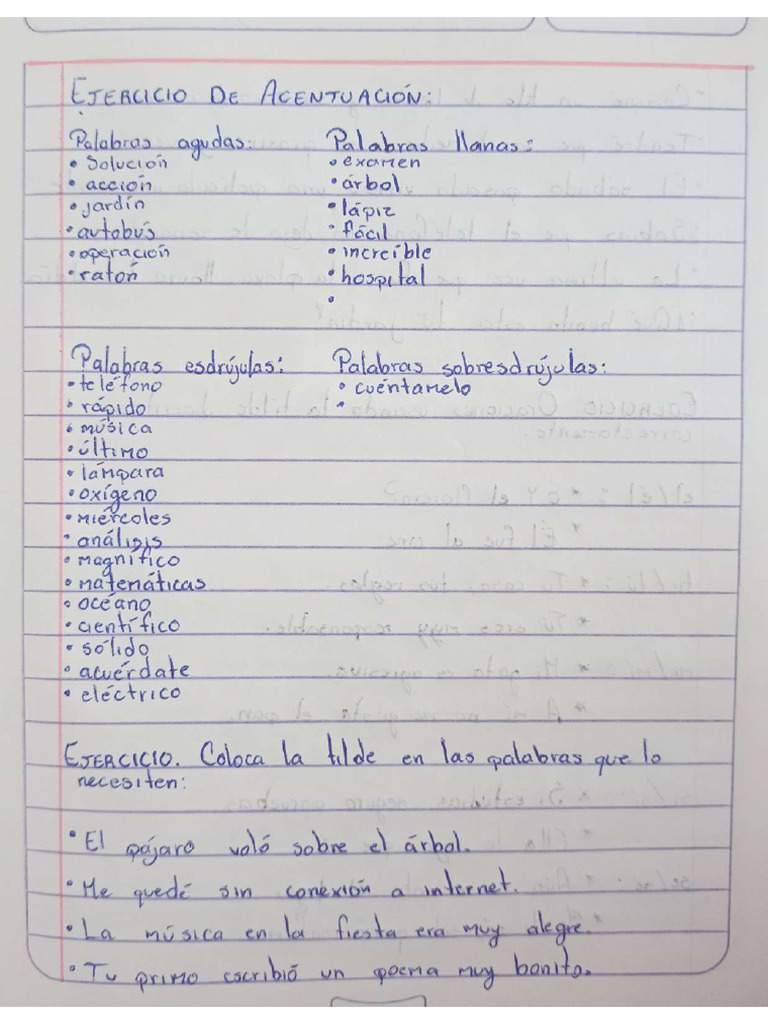 EJERCICIO DE ACENTUACIÓN:
Palabras agudas:
• Solución
• acción
• jardín
• autobús
• operación
• ratón
Palabras llanas:
• examen
• árbol
• lápiz
• fácil
• increíble
• hospital
•
Palabras esdrújulas:
• teléfono
• rápido
• música
• último
• lámpara
• oxígeno
• miércoles
• análisis
• magnífico
• matemáticas
• océano
• científico
• sólido
• acuérdate
• eléctrico
Palabras sobresdrújulas:
• cuéntamelo
•
EJERCICIO. Coloca la tilde en las palabras que lo
necesiten:
• El pájaro voló sobre el árbol.
• Me quedé sin conexión a internet.
• La música en la fiesta era muy alegre.
• Tu primo escribió un poema muy bonito.